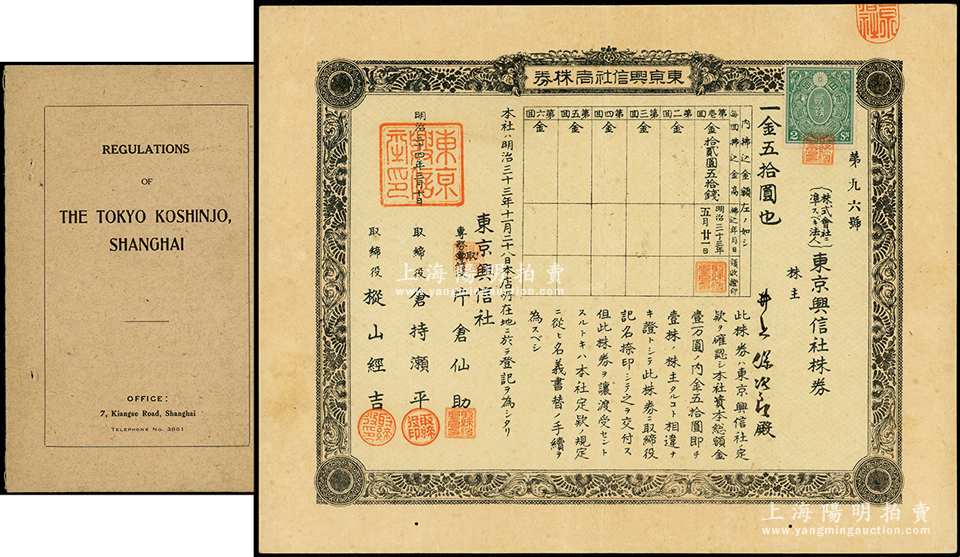 REGULATIONS
OF
THE TOKYO KOSHINJO,
SHANGHAI
OFFICE:
7, Kiangse Road, Shanghai
TELEPHONE No. 3851
券株社信興京東
2 SN
第九六號
(株式會社ニ準スベキ法人)
東京興信社株券
株主
井上
殿
一金五拾圓也
內拂込金額左ノ如シ
每回拂込金高
拂込年月日
領收證印
第壱回
金拾貳圓五拾錢
明治三十三年
五月廿一日
第二回
金
第三回
金
第四回
金
第五回
金
第六回
金
此株券ハ東京興信社ノ定
款ヲ確認シ本社資本總額金
壹万圓ノ內金五拾圓即チ
壹株ノ株主タルコト相違ナ
キ證トシテ此株券ニ取締役
記名捺印シテ之ヲ交付ス
但此株券ヲ讓渡受セント
スルトキハ本社定款ノ規定
ニ從ヒ名義書替ノ手續ヲ
為スベシ
本社ハ明治三十三年十一月二十八日本店所在地ニ於テ登記ヲ為シタリ
明治三十四年三月十日
東京興信社
專務取締役 片倉仙助
取締役 倉持瀬平
取締役 樅山經吉
東京興信社印
上海陽明拍賣
www.yangmingauction.com
上海陽明拍賣
www.yangmingauction.com